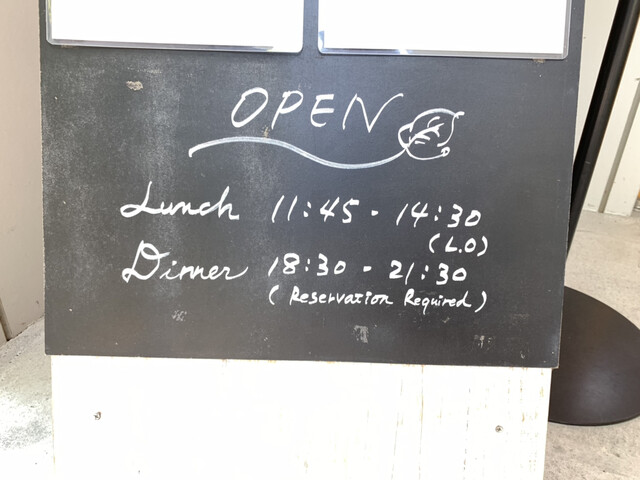 OPEN
Lunch 11:45 - 14:30
(L.O)
Dinner 18:30 - 21:30
(Reservation Required)